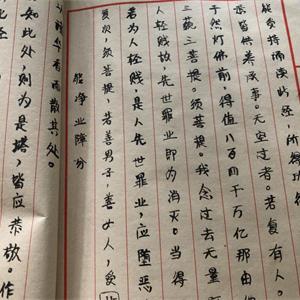 能受持读诵此经,所得功
悉皆供养承事。无空过者。若复有人。
于然灯佛前,得值八百四千万亿那由
三藐三菩提。须菩提。我念过去无量
人轻贱故,先世罪业即为消灭。当得
若为人轻贱,是人先世罪业,应堕恶
复次,须菩提,若善男子,善女人,受
能净业障分
诸华香而散其处。
知此处,则为是塔,皆应恭敬。作